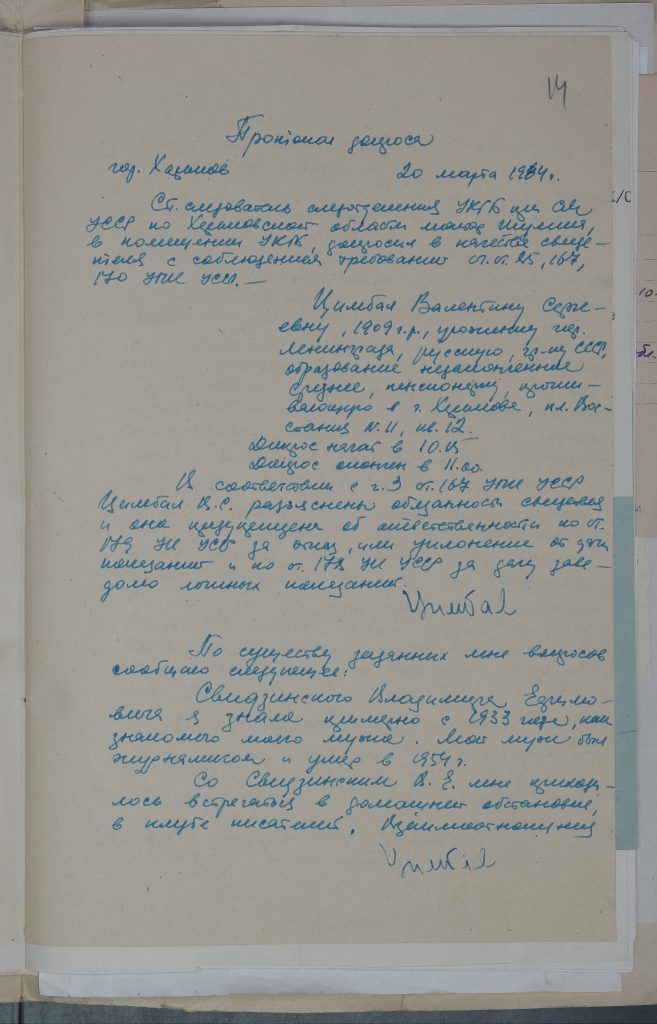 14
Протокол допроса
гор. Харьков 20 марта 1964г.
Ст. следователь следотделения УКГБ при СМ
УССР по Харьковской области майор
в помещении УКГБ, допросил в качестве свиде-
теля с соблюдением требований ст.ст. 85, 167,
170 УПК УССР. —
Цимбал Валентину Серге-
евну, 1909 г.р., уроженку гор.
Ленинграда, русскую, гр-ку СССР,
образование незаконченное
среднее, пенсионерку, прожи-
вающую в г. Харькове, пл. Вос-
стания N. 11, кв. 12.
Допрос начат в 10.15
Допрос окончен в 11.00
В соответствии с ч. 3 ст. 167 УПК УССР
Цимбал В.С. разъяснены обязанности свидетеля
и она предупреждена об ответственности по ст.
179 УК УССР за отказ, или уклонение от дачи
показаний и по ст. 178 УК УССР за дачу заве-
домо ложных показаний.
Цимбал
По существу заданных мне вопросов
сообщаю следующее:
Свидзинского Владимира Ефимо-
вича я знала примерно с 1933 года, как
знакомого моего мужа. Мой муж был
журналистом и умер в 1954 г.
Со Свидзинским В. Е. мне приходи-
лось встречаться в домашней обстановке,
в клубе писателей. Взаимоотношения
Цимбал